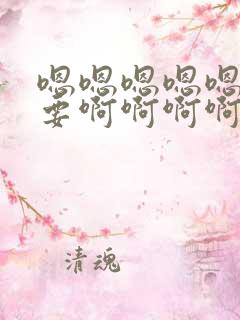 嗯嗯嗯嗯嗯
要啊啊啊啊
清魂